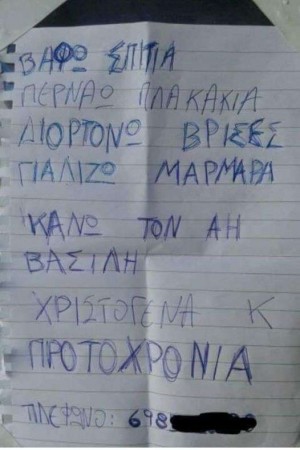 ΒΑΦΩ ΣΠΙΠΑ
ΠΕΡΝΑΩ ΠΛΑΚΑΚΙΑ
ΔΙΟΡΤΟΝΩ ΒΡΙΣΕΣ
ΓΙΑΛΙΖΩ ΜΑΡΜΑΡΑ
ΚΑΝΩ ΤΟΝ ΑΗ
ΒΑΣΙΛΗ
ΧΡΙΣΤΟΓΕΝΑ Κ
ΠΡΟΤΟΧΡΟΝΙΑ
ΠΛΕΦΩΝΟ: 698